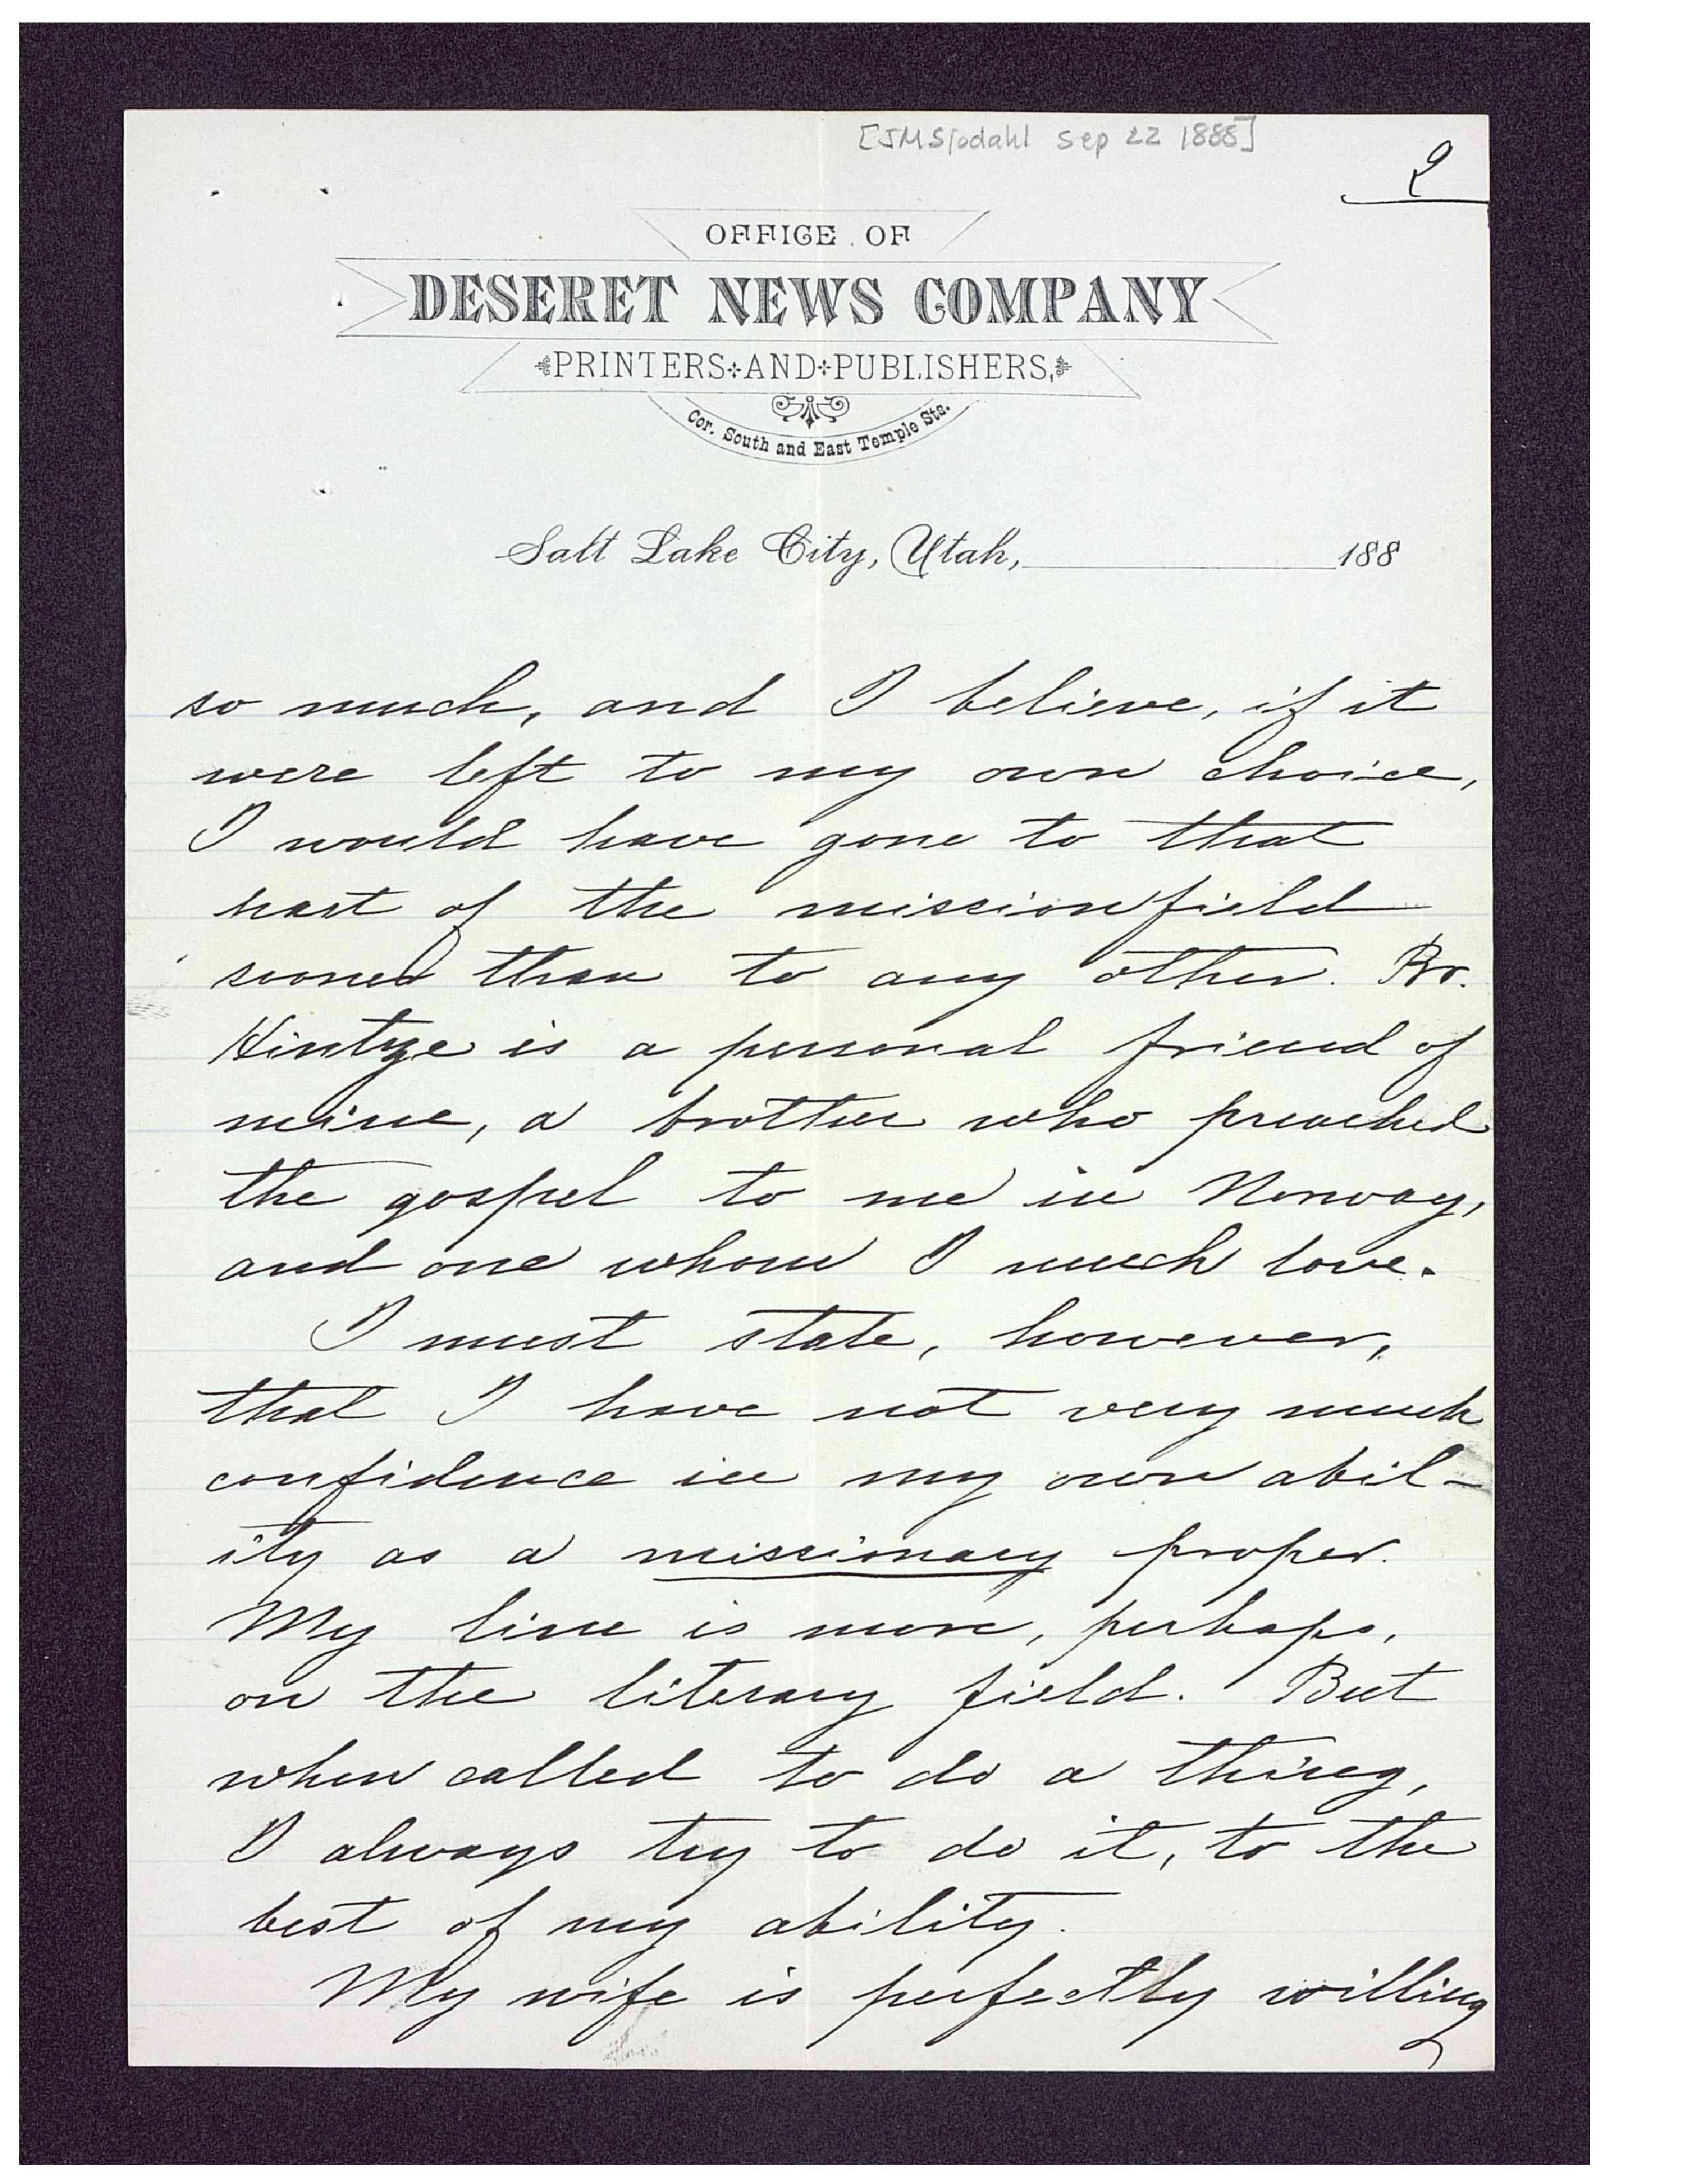 [JMSjodahl Sep 22 1888]
2
OFFICE OF
DESERET NEWS COMPANY
PRINTERS AND PUBLISHERS,
Cor. South and East Temple Sts.
Salt Lake City, Utah, 188
so much, and I believe, if it
were left to my own choice,
I would have gone to that
part of the missionfield
sooner than to any other. Bro.
Hintze is a personal friend of
mine, a brother who preached
the gospel to me in Norway,
and one whom I much love.
I must state, however,
that I have not very much
confidence in my own abil-
ity as a missionary proper.
My line is more, perhaps,
on the literary field. But
when called to do a thing,
I always try to do it, to the
best of my ability.
My wife is perfectly willing